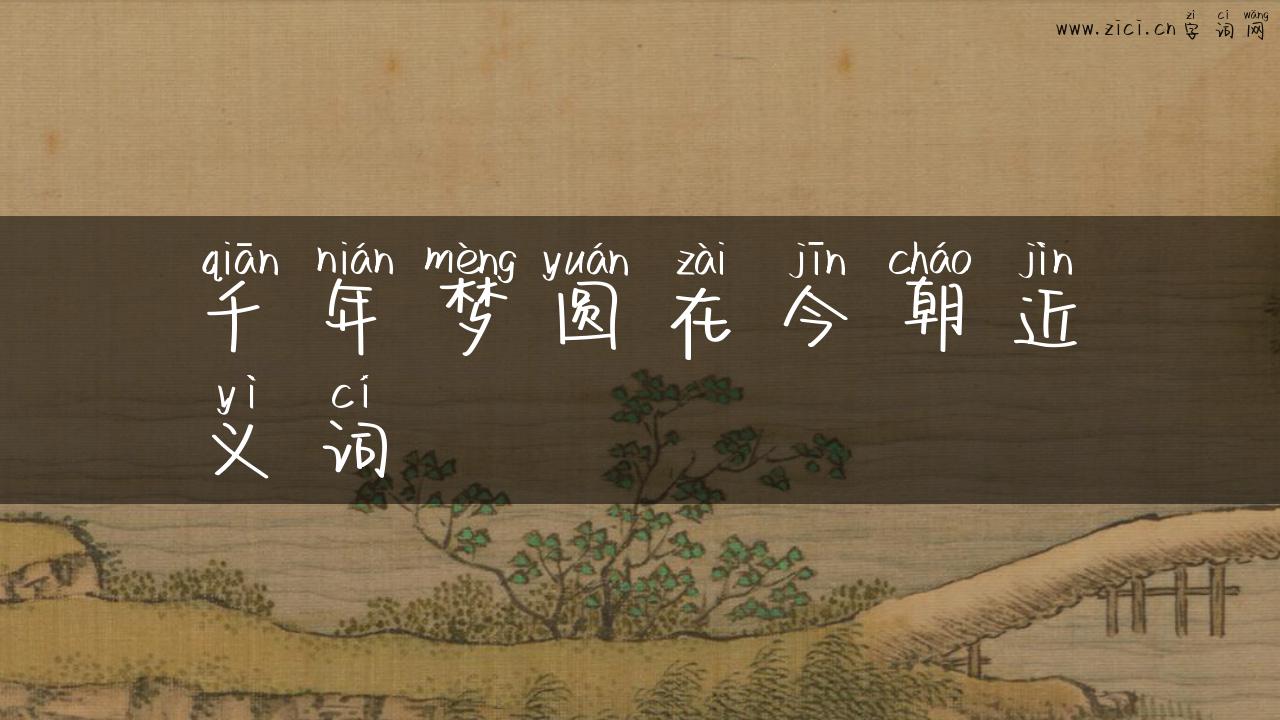 zì cí wǎng
www.zici.cn 字词网
qiān nián mèng yuán zài jīn cháo jìn
千年梦圆在今朝近
yì cí
义词